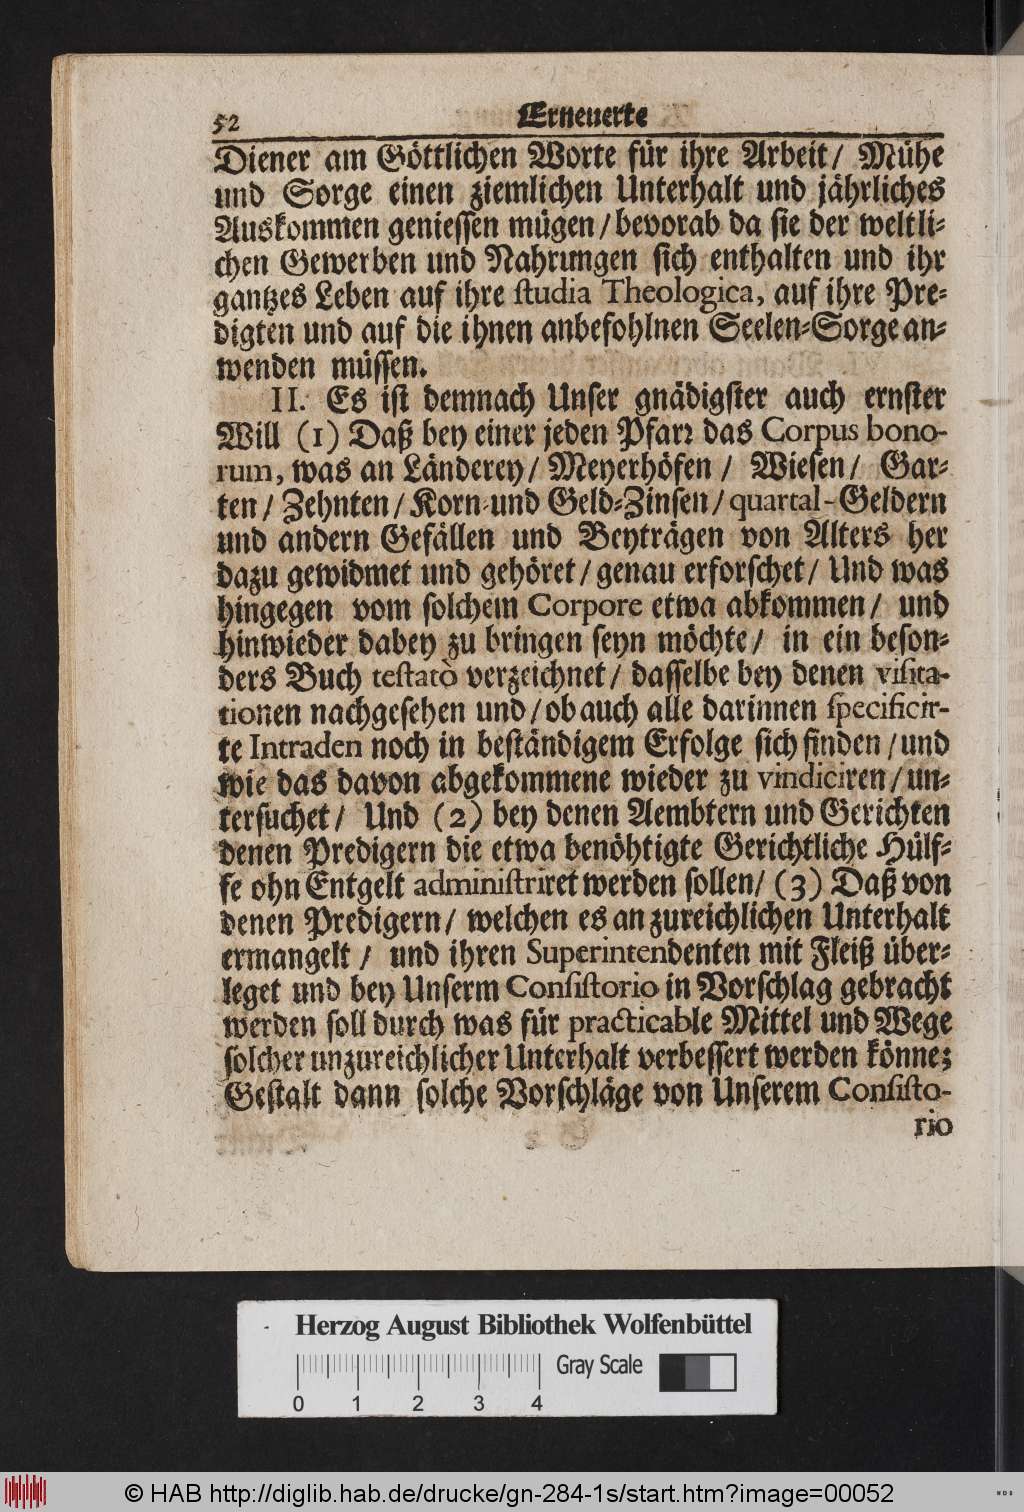 52
Erneuerte
Diener am Göttlichen Worte für ihre Arbeit/ Mühe
und Sorge einen ziemlichen Unterhalt und jährliches
Auskommen geniessen mügen/bevorab da sie der weltli-
chen Gewerben und Nahrungen sich enthalten und ihr
gantzes Leben auf ihre studia Theologica, auf ihre Pre-
digten und auf die ihnen anbefohlnen Seelen-Sorge an-
wenden müssen.
II. Es ist demnach Unser gnädigster auch ernster
Will (1) Daß bey einer jeden Pfarr das Corpus bono-
rum, was an Länderey/ Meyerhöfen / Wiesen/ Gar-
ten / Zehnten / Korn-und Geld-Zinsen/ quartal-Geldern
und andern Gefällen und Beyträgen von Alters her
dazu gewidmet und gehöret/genau erforschet/ Und was
hingegen vom solchem Corpore etwa abkommen/ und
hinwieder dabey zu bringen seyn möchte/ in ein beson-
ders Buch testatò verzeichnet/ dasselbe bey denen visita-
tionen nachgesehen und/ob auch alle darinnen specificir-
te Intraden noch in beständigem Erfolge sich finden/und
wie das davon abgekommene wieder zu vindiciren/un-
tersuchet/ Und (2) bey denen Aembtern und Gerichten
denen Predigern die etwa benöhtigte Gerichtliche Hülf-
fe ohn Entgelt administriret werden sollen/ (3) Daß von
denen Predigern/ welchen es an zureichlichen Unterhalt
ermangelt / und ihren Superintendenten mit Fleiß über-
leget und bey Unserm Consistorio in Vorschlag gebracht
werden soll durch was für practicable Mittel und Wege
solcher unzureichlicher Unterhalt verbessert werden könne;
Gestalt dann solche Vorschläge von Unserem Consisto-
rio
Herzog August Bibliothek Wolfenbüttel
Gray Scale
0 1 2 3 4
© HAB http://diglib.hab.de/drucke/gn-284-1s/start.htm?image=00052